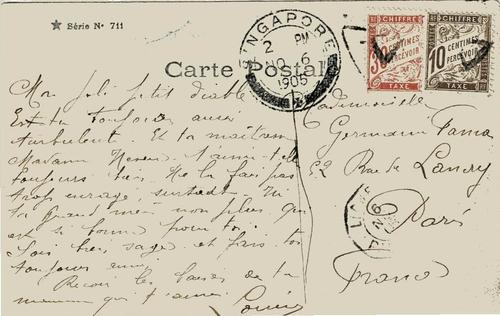 ★ Série No 711
SINGAPORE
2 PM
NO 6
1905
Carte Postale
CHIFFRE
30 CENTIMES
A PERCEVOIR
TAXE
CHIFFRE
10 CENTIMES
A PERCEVOIR
TAXE
Mon joli petit diable
Es tu toujours aussi
turbulent. Et ta maîtresse
Madame t'aime t'elle
toujours bien. Ne la fais pas
trop enrager surtout. Ni
ta grand'mère non plus, qui
est si bonne pour toi.
Sois bien sage et fais toi
toujours aimer
Reçois les baisers de ta
maman qui t'aime
Mademoiselle
Germaine
52 Rue de Lancry
Paris
France